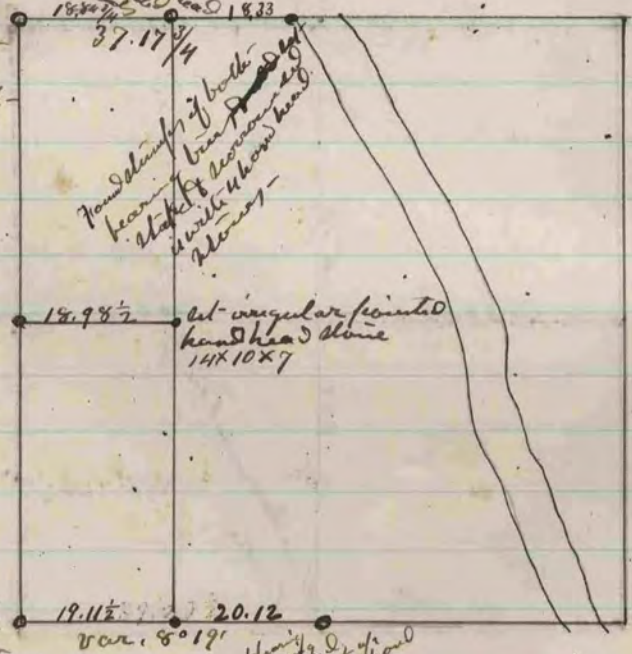 18.84 3/4 18.33
37.17 3/4
Found stumps of both
bearing trees set
stake & surrounded
it with 4 hard head
stones-
18.98 1/2 set irregular pointed
hard head stone
14X10X7
19.11 1/2 20.12
var. 8° 19'